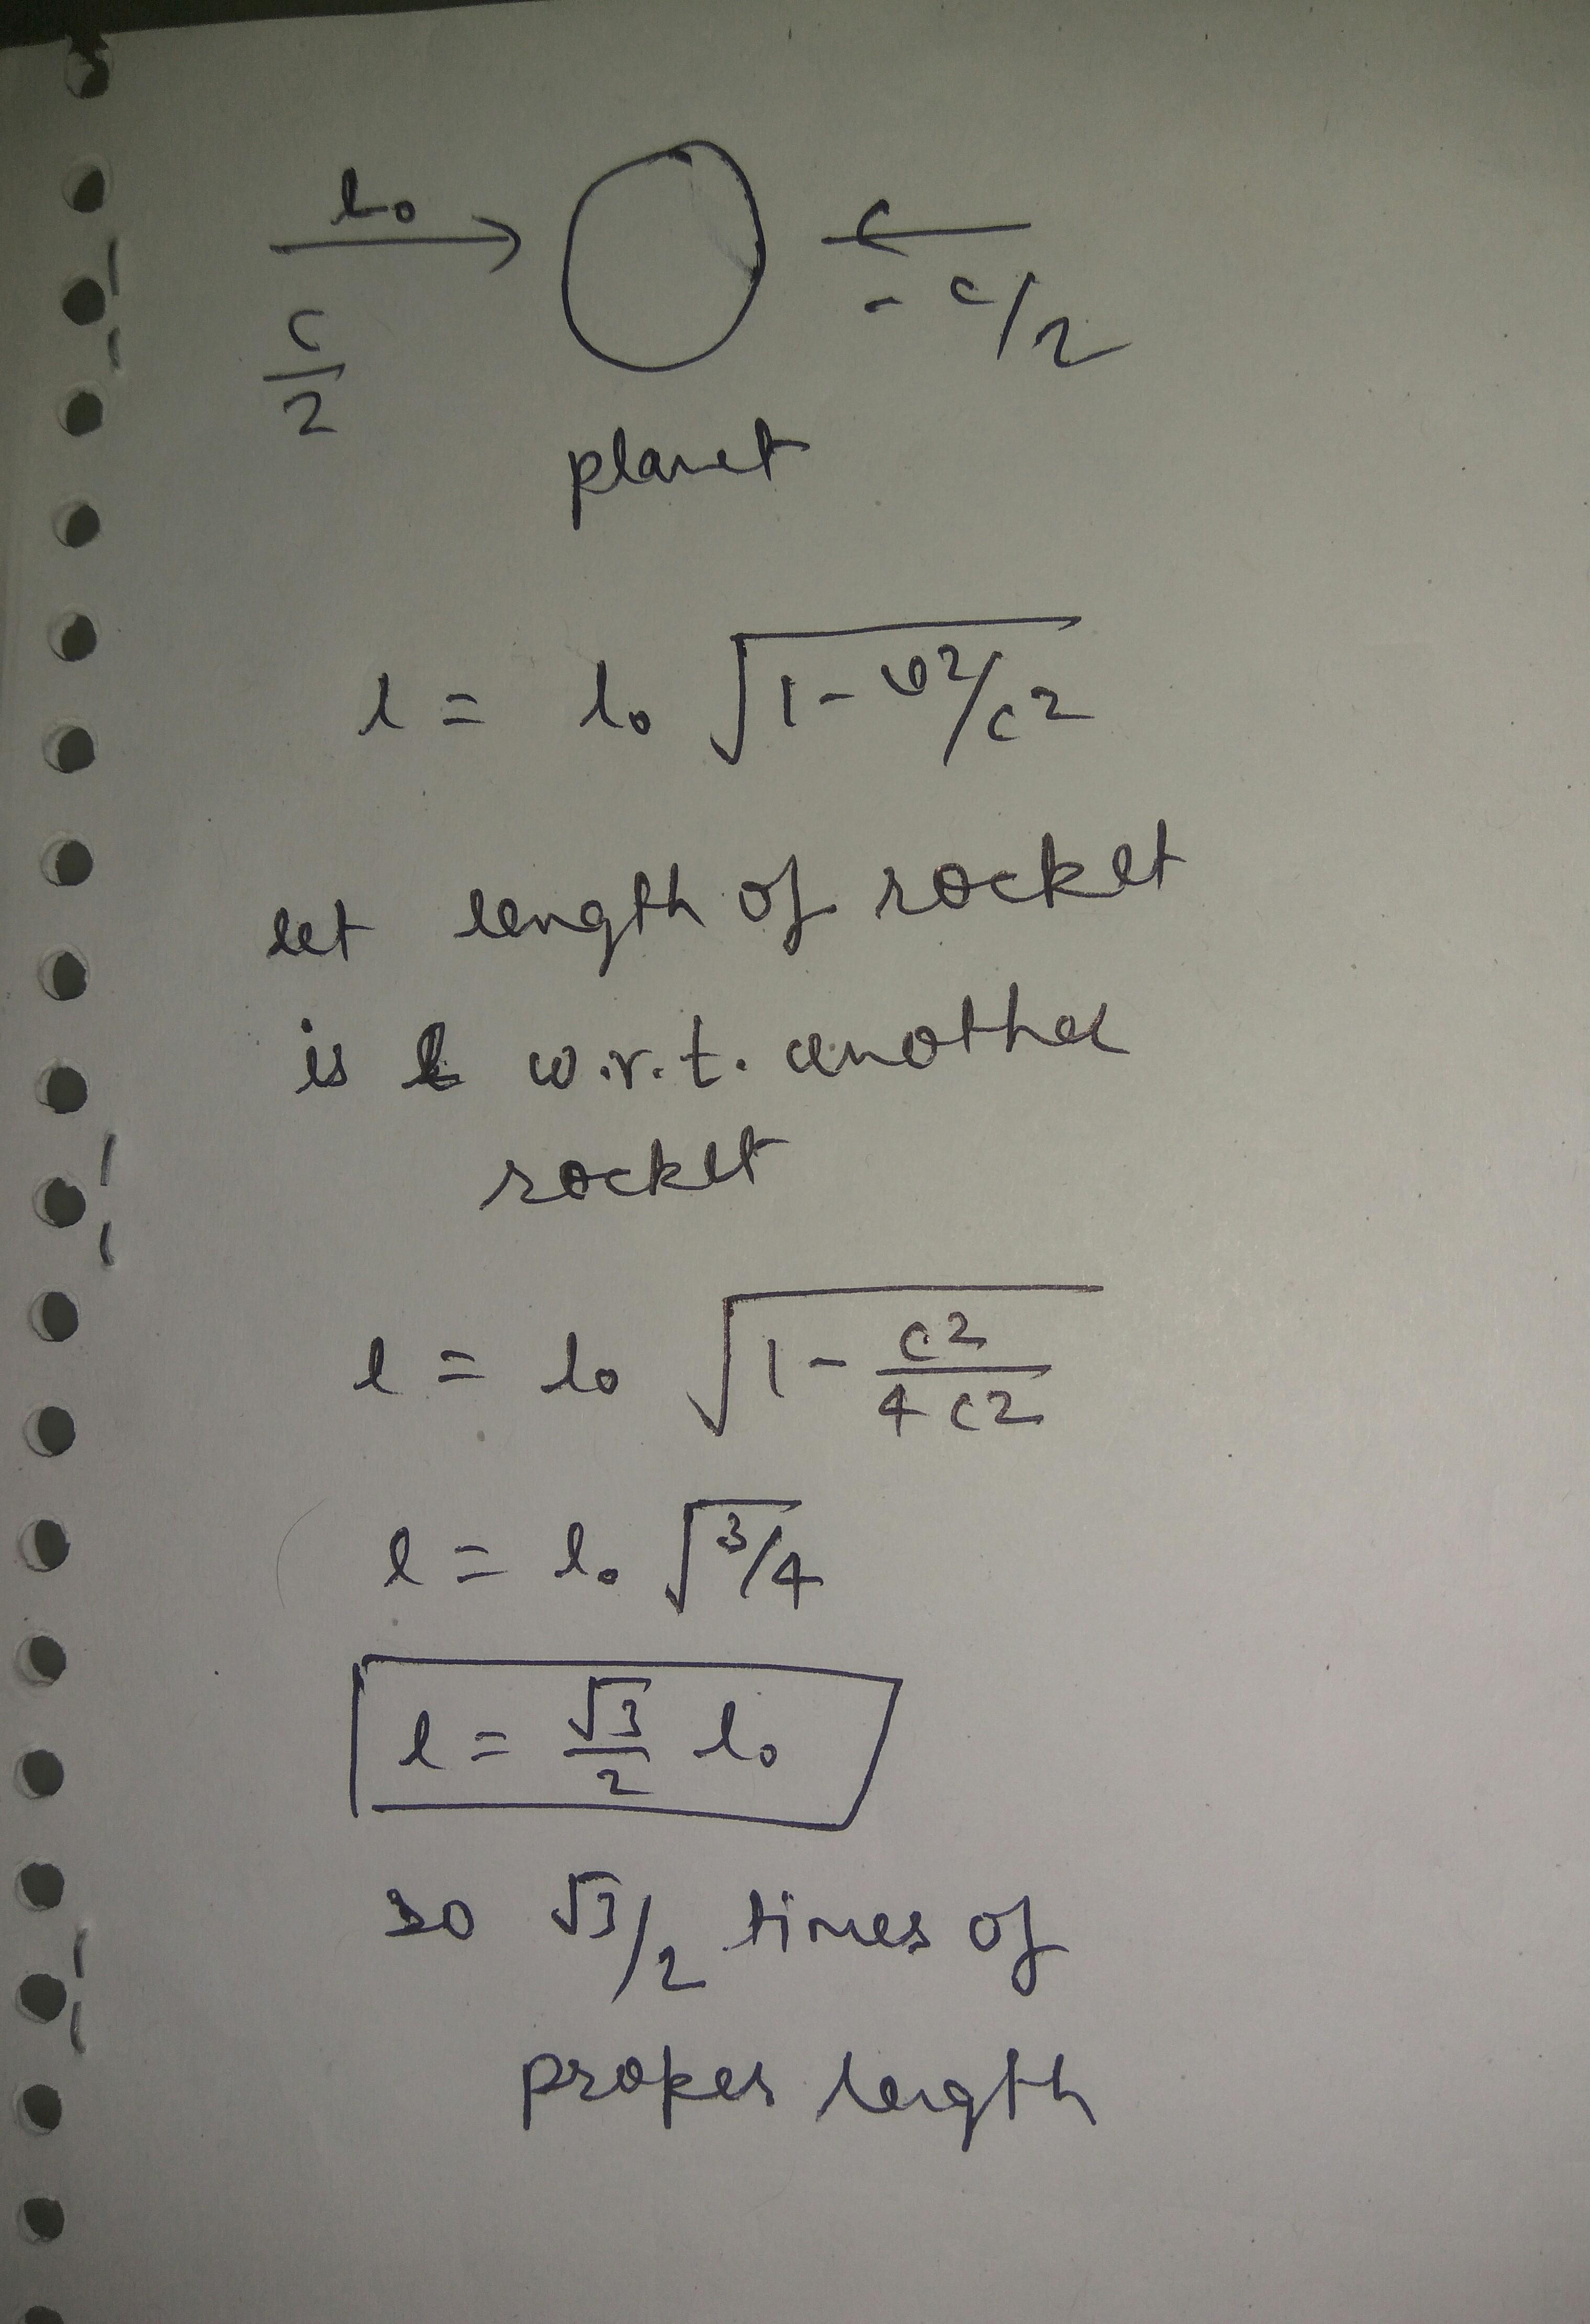 l₀
c/2
- c/2
planet
l = l₀ √(1 - v²/c²)
let length of rocket
is l w.r.t. another
rocket
l = l₀ √(1 - c²/4c²)
l = l₀ √(3/4)
l = √3/2 l₀
so √3/2 times of
proper length